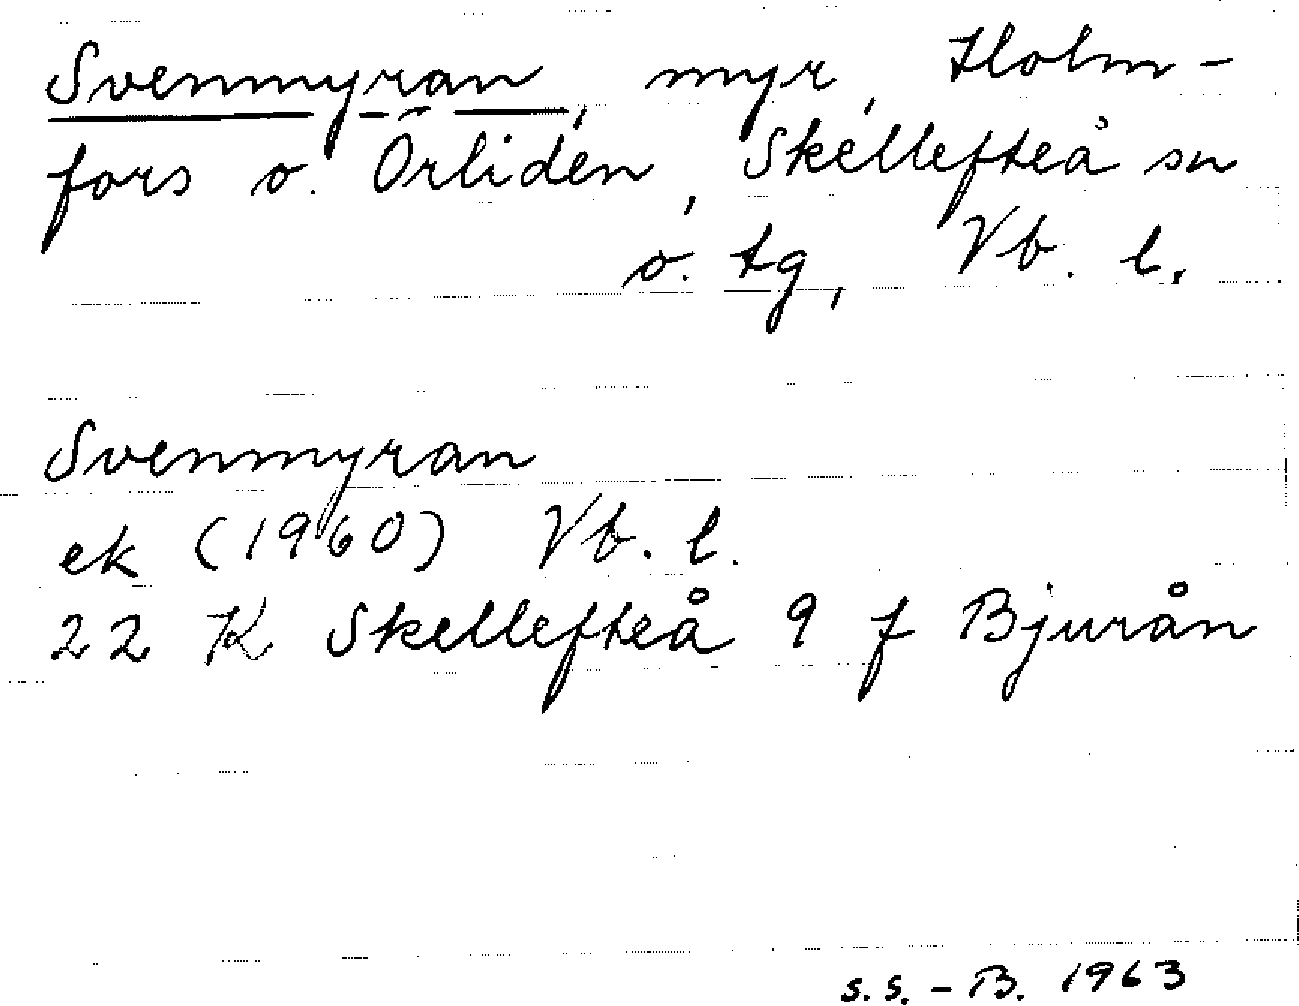 Svenmyran, myr, Holm-
fors o. Örliden, Skellefteå sn
o. tg, Vb. l.
Svenmyran
ek (1960) Vb. l.
22 K Skellefteå 9 f Bjurån
s.s. - B. 1963